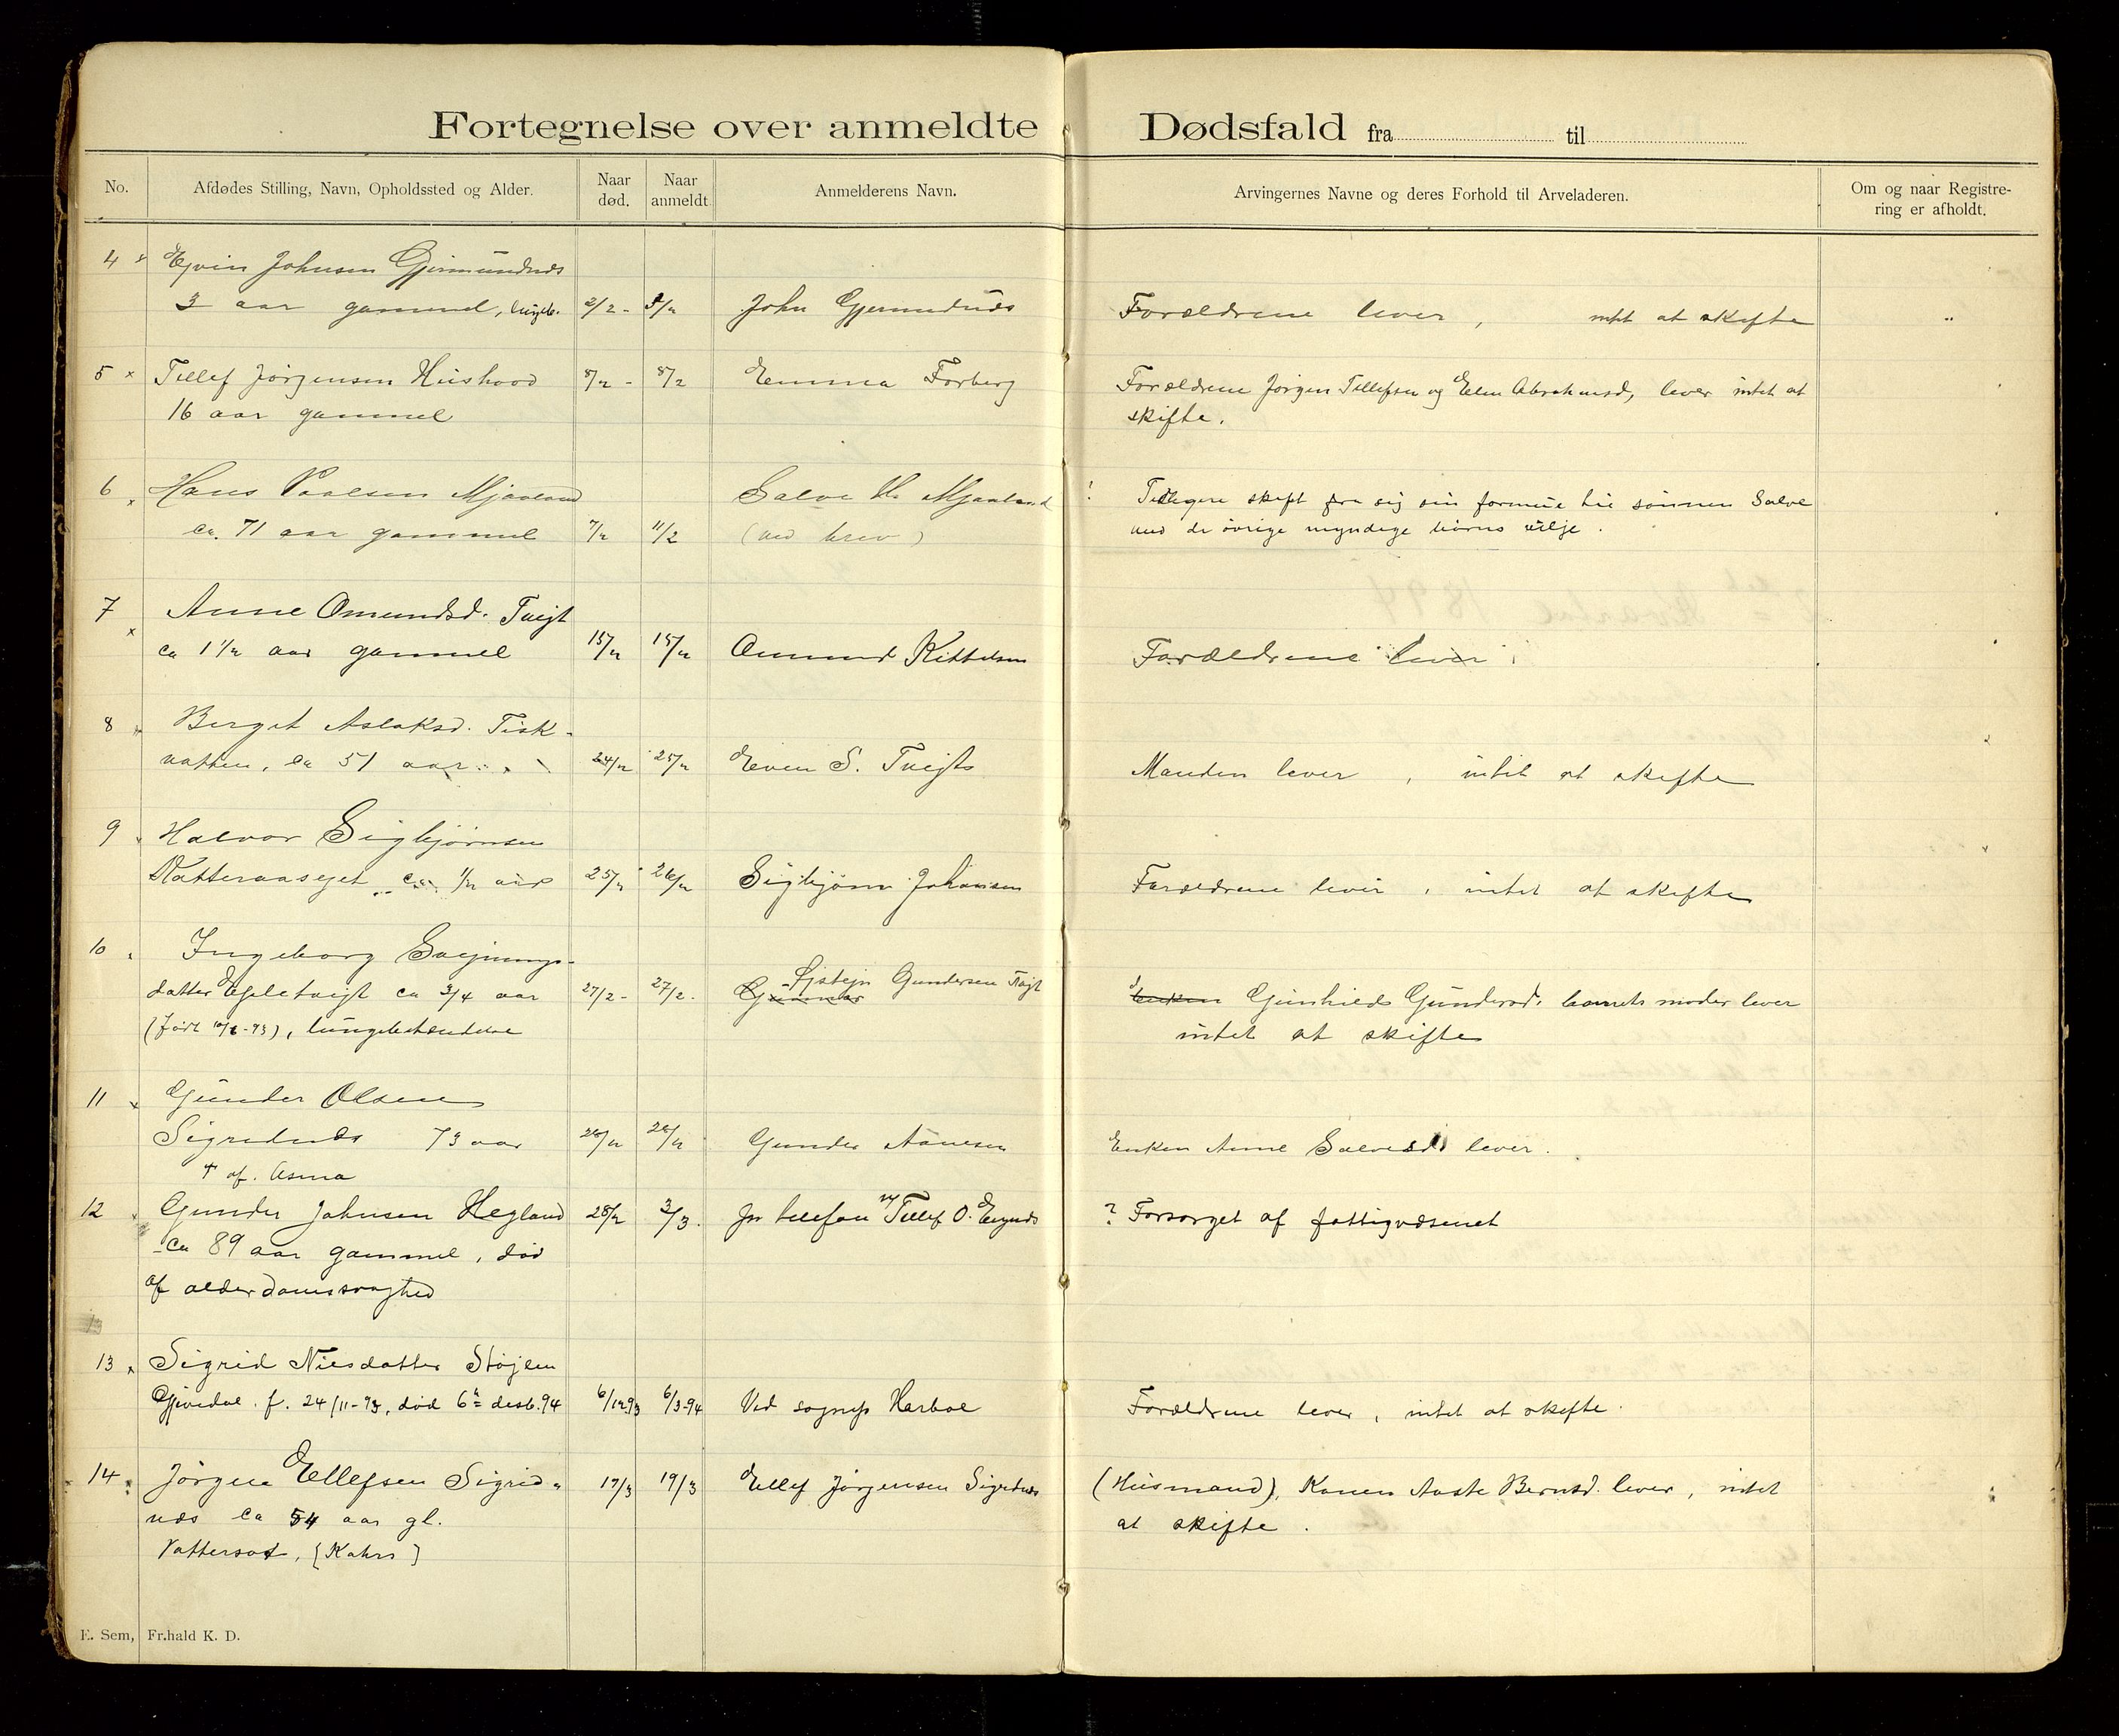 Fortegnelse over anmeldte Dødsfald fra til
No. Afdødes Stilling, Navn, Opholdssted og Alder. Naar død. Naar anmeldt. Anmelderens Navn. Arvingernes Navne og deres Forhold til Arveladeren. Om og naar Registrering er afholdt.
4 Ejvin Johnsen Gjermundnds
3 aar gammel, lungeb. 2/2 - John Gjermundnds Forældrene lever, intet at skifte "
5 x Tellef Jørgensen Hushovd 8/2 - 8/2 Emma Forberg Forældrene Jørgen Tellefsen og Elen Abrahamsd, lever intet at
16 aar gammel skifte.
6 x Hans Paalsen Mjaaland Salve H. Mjaaland ! Tidligere skift fra sig sin formue til sønnen Salve
ca. 71 aar gammel 7/2 11/2 (ved brev) med de øvrige myndige børns vilje.
7 x Anne Omundsd. Tvejt
ca 1 1/2 aar gammel 15/2 15/2 Omund Kittelsen Forældrene lever
8 Berget Aslaksd. Fisk-
vatten, ca 51 aar 24/2 25/2 Even S. Tvejts Manden lever, intet at skifte
9 Halvor Sigbjørnsen
Katteraaseget ca 1/2 aar 25/2 26/2 Sigbjørn Johansen Forældrene lever, intet at skifte
10 Ingeborg Svejnungs-
datter Egeletveit ca 3/4 aar 27/2 - 27/2. Gunnar Øjstejn Gundersen Tvejt Enken Gunhild Gundersd. barnets moder lever
(født -93), lungebetændelse intet at skifte
11 x Gunder Olsen
Sigridnds 73 aar 26/2 26/2 Gunder Aanesen Enken Anne Salvesd. lever.
+ af. Asma
12 Gunder Johnsen Hegland 28/2 3/3. pr telefon ved Tellef O. Ejnds ? Forsørget af fattigvæsenet
ca 89 aar gammel, død
af alderdomssvaghed
13 x Sigrid Nilsdatter Støjlen
Gjøvdal. f. 24/11-93, død 6te desb. 94 6/12-93 6/3-94 Ved sognep Harboe Forældrene lever, intet at skifte.
14 Jørgen Ellefsen Sigrid- 17/3 19/3 Ellef Jørgensen Sigridnds (Husmand), Konen Aaste Berntsd. lever, intet
nds ca 54 aar gl. at skifte.
Vattersot, [Kahrs]
E. Sem, Fr.hald K. D.